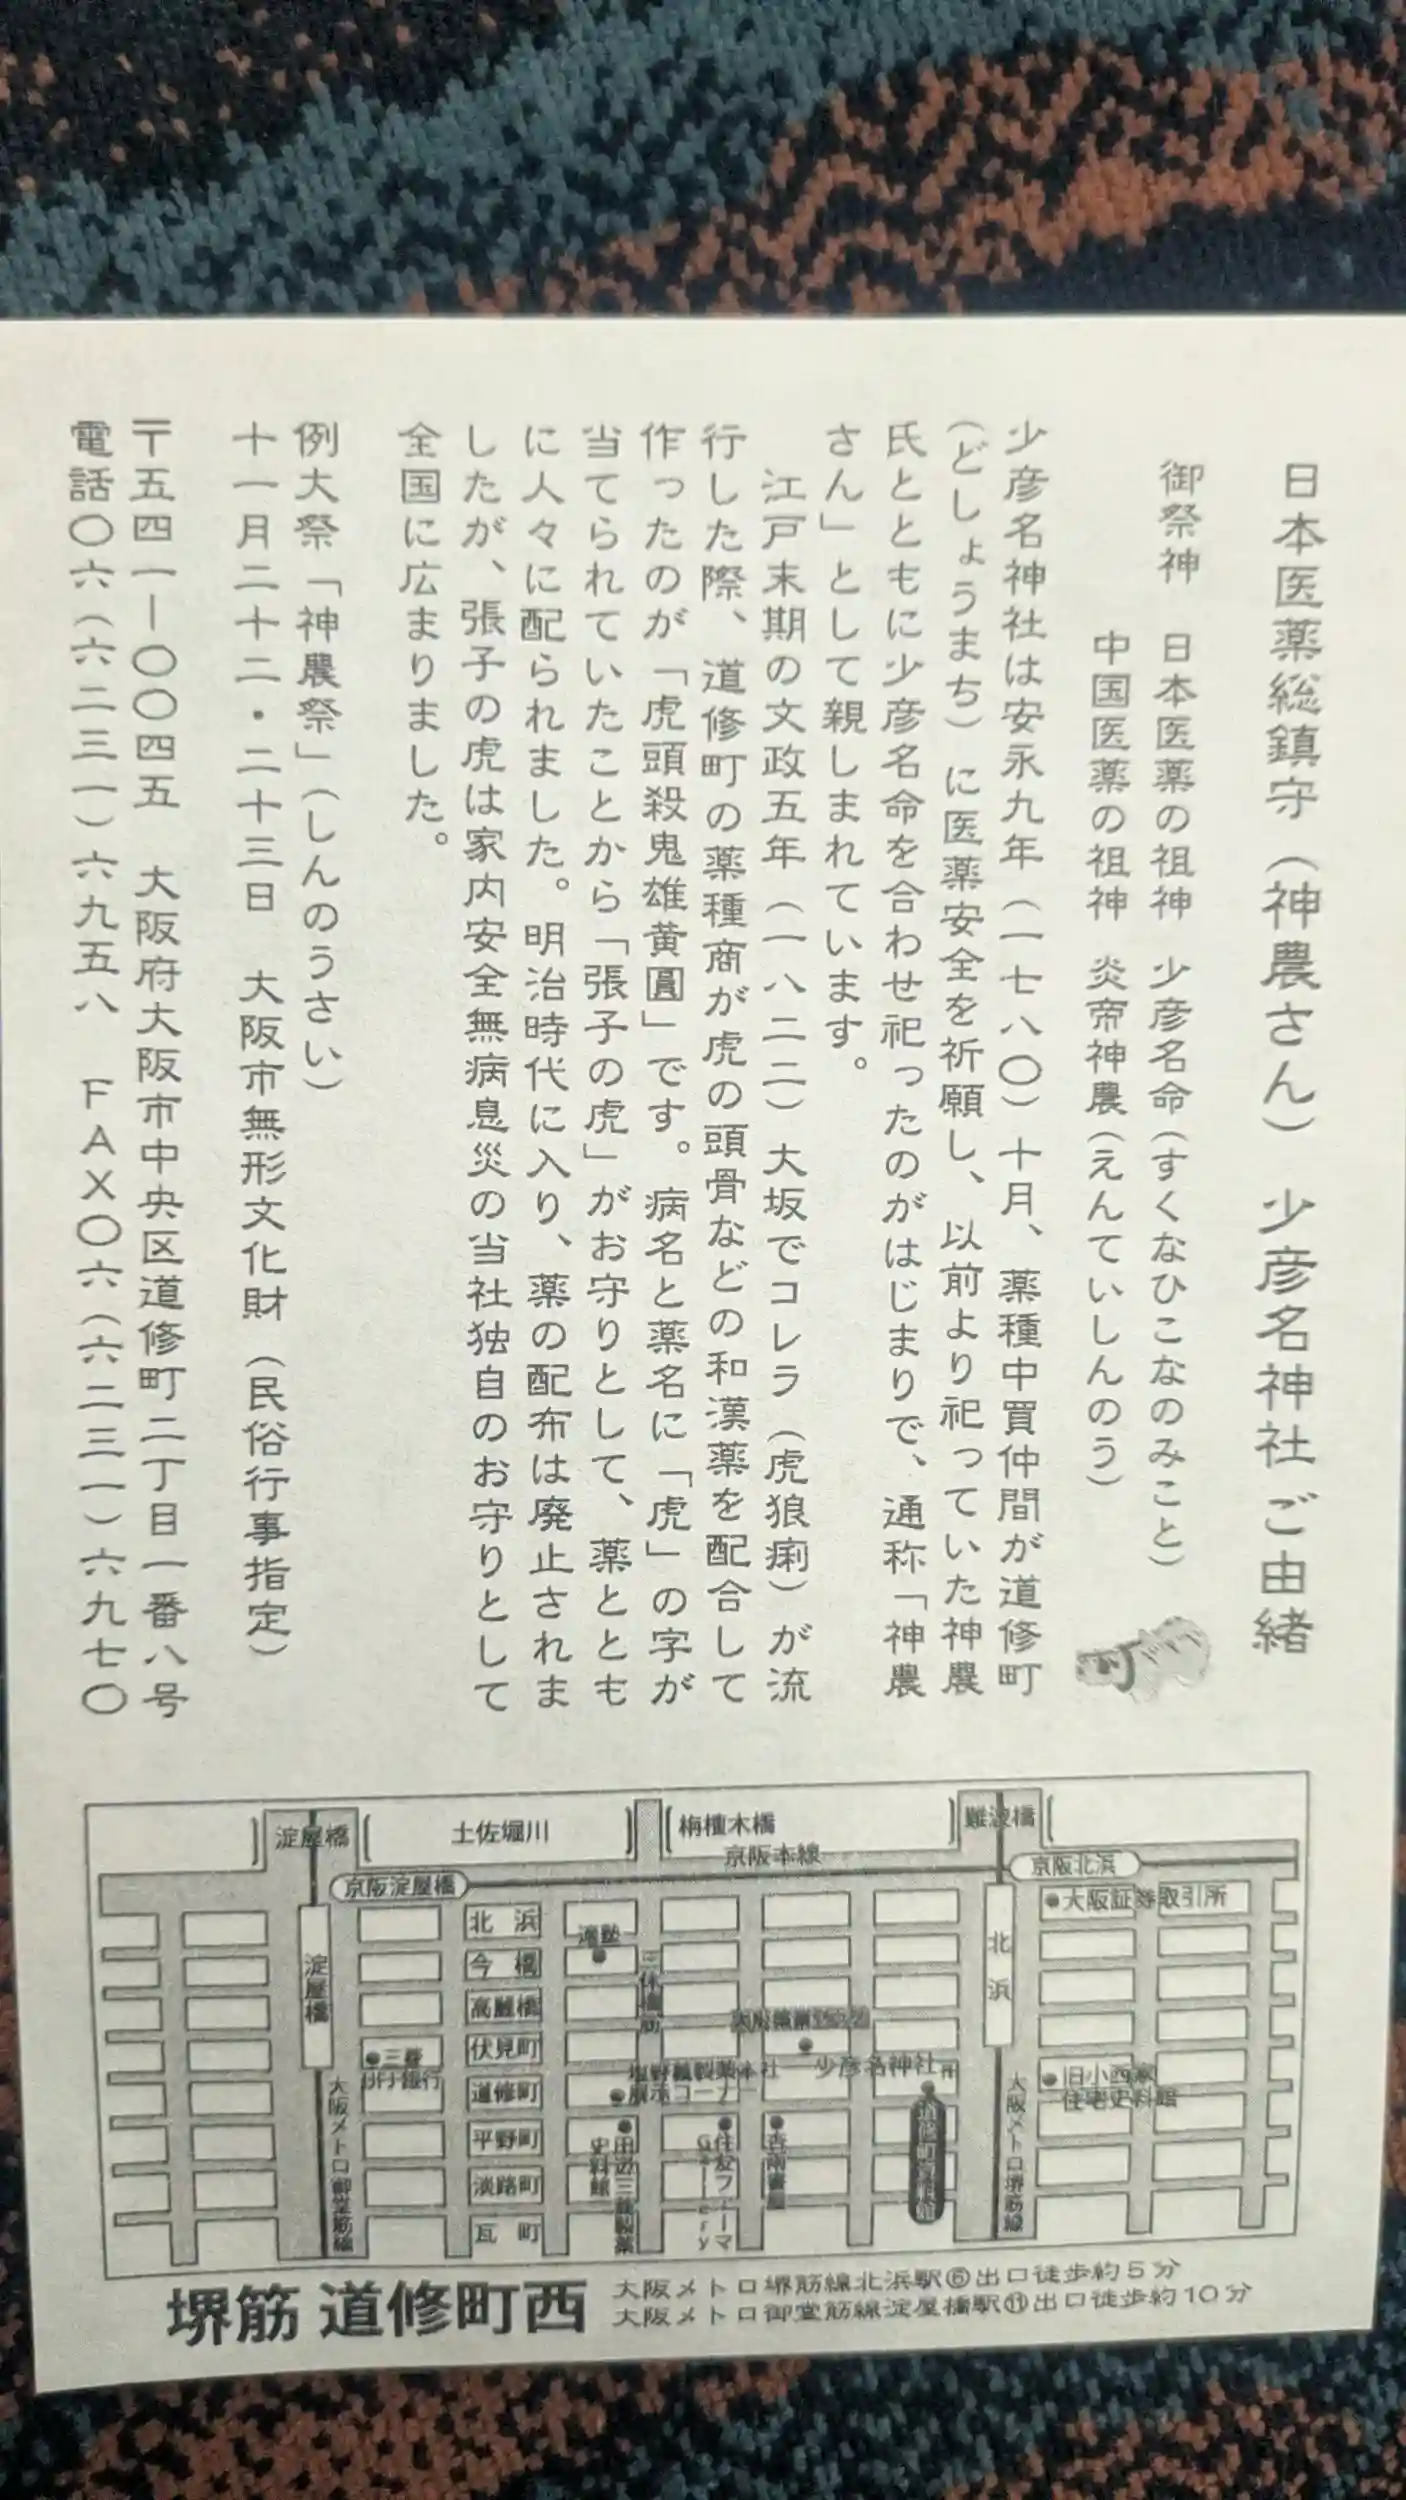 日本医薬総鎮守（神農さん）少彦名神社ご由緒
御祭神　日本医薬の祖神　少彦名命（すくなひこなのみこと）
中国医薬の祖神　炎帝神農（えんていしんのう）
少彦名神社は安永九年（一七八〇）十月、薬種中買仲間が道修町
（どしょうまち）に医薬安全を祈願し、以前より祀っていた神農
氏とともに少彦名命を合わせ祀ったのがはじまりで、通称「神農
さん」として親しまれています。
江戸末期の文政五年（一八二二）大坂でコレラ（虎狼痢）が流
行した際、道修町の薬種商が虎の頭骨などの和漢薬を配合して
作ったのが「虎頭殺鬼雄黄圓」です。病名と薬名に「虎」の字が
当てられていたことから「張子の虎」がお守りとして、薬ととも
に人々に配られました。明治時代に入り、薬の配布は廃止されま
したが、張子の虎は家内安全無病息災の当社独自のお守りとして
全国に広まりました。
例大祭「神農祭」（しんのうさい）
十一月二十二・二十三日　大阪市無形文化財（民俗行事指定）
〒五四一－〇〇四五　大阪府大阪市中央区道修町二丁目一番八号
電話〇六（六二三一）六九五八　ＦＡＸ〇六（六二三一）六九七〇
淀屋橋
土佐堀川
栴檀木橋
難波橋
京阪本線
京阪淀屋橋
京阪北浜
大阪証券取引所
北浜
今橋
高麗橋
伏見町
道修町
平野町
淡路町
瓦町
適塾
三休橋筋
淀屋橋
北浜
三菱
UFJ銀行
少彦名神社
塩野義製薬本社
展示コーナー
旧小西家
住宅史料館
大阪メトロ御堂筋線
大阪メトロ堺筋線
田辺三菱製薬
史料館
住友ファーマ
Gallery
杏雨書屋
堺筋 道修町西
大阪メトロ堺筋線北浜駅⑥出口徒歩約５分
大阪メトロ御堂筋線淀屋橋駅⑪出口徒歩約10分